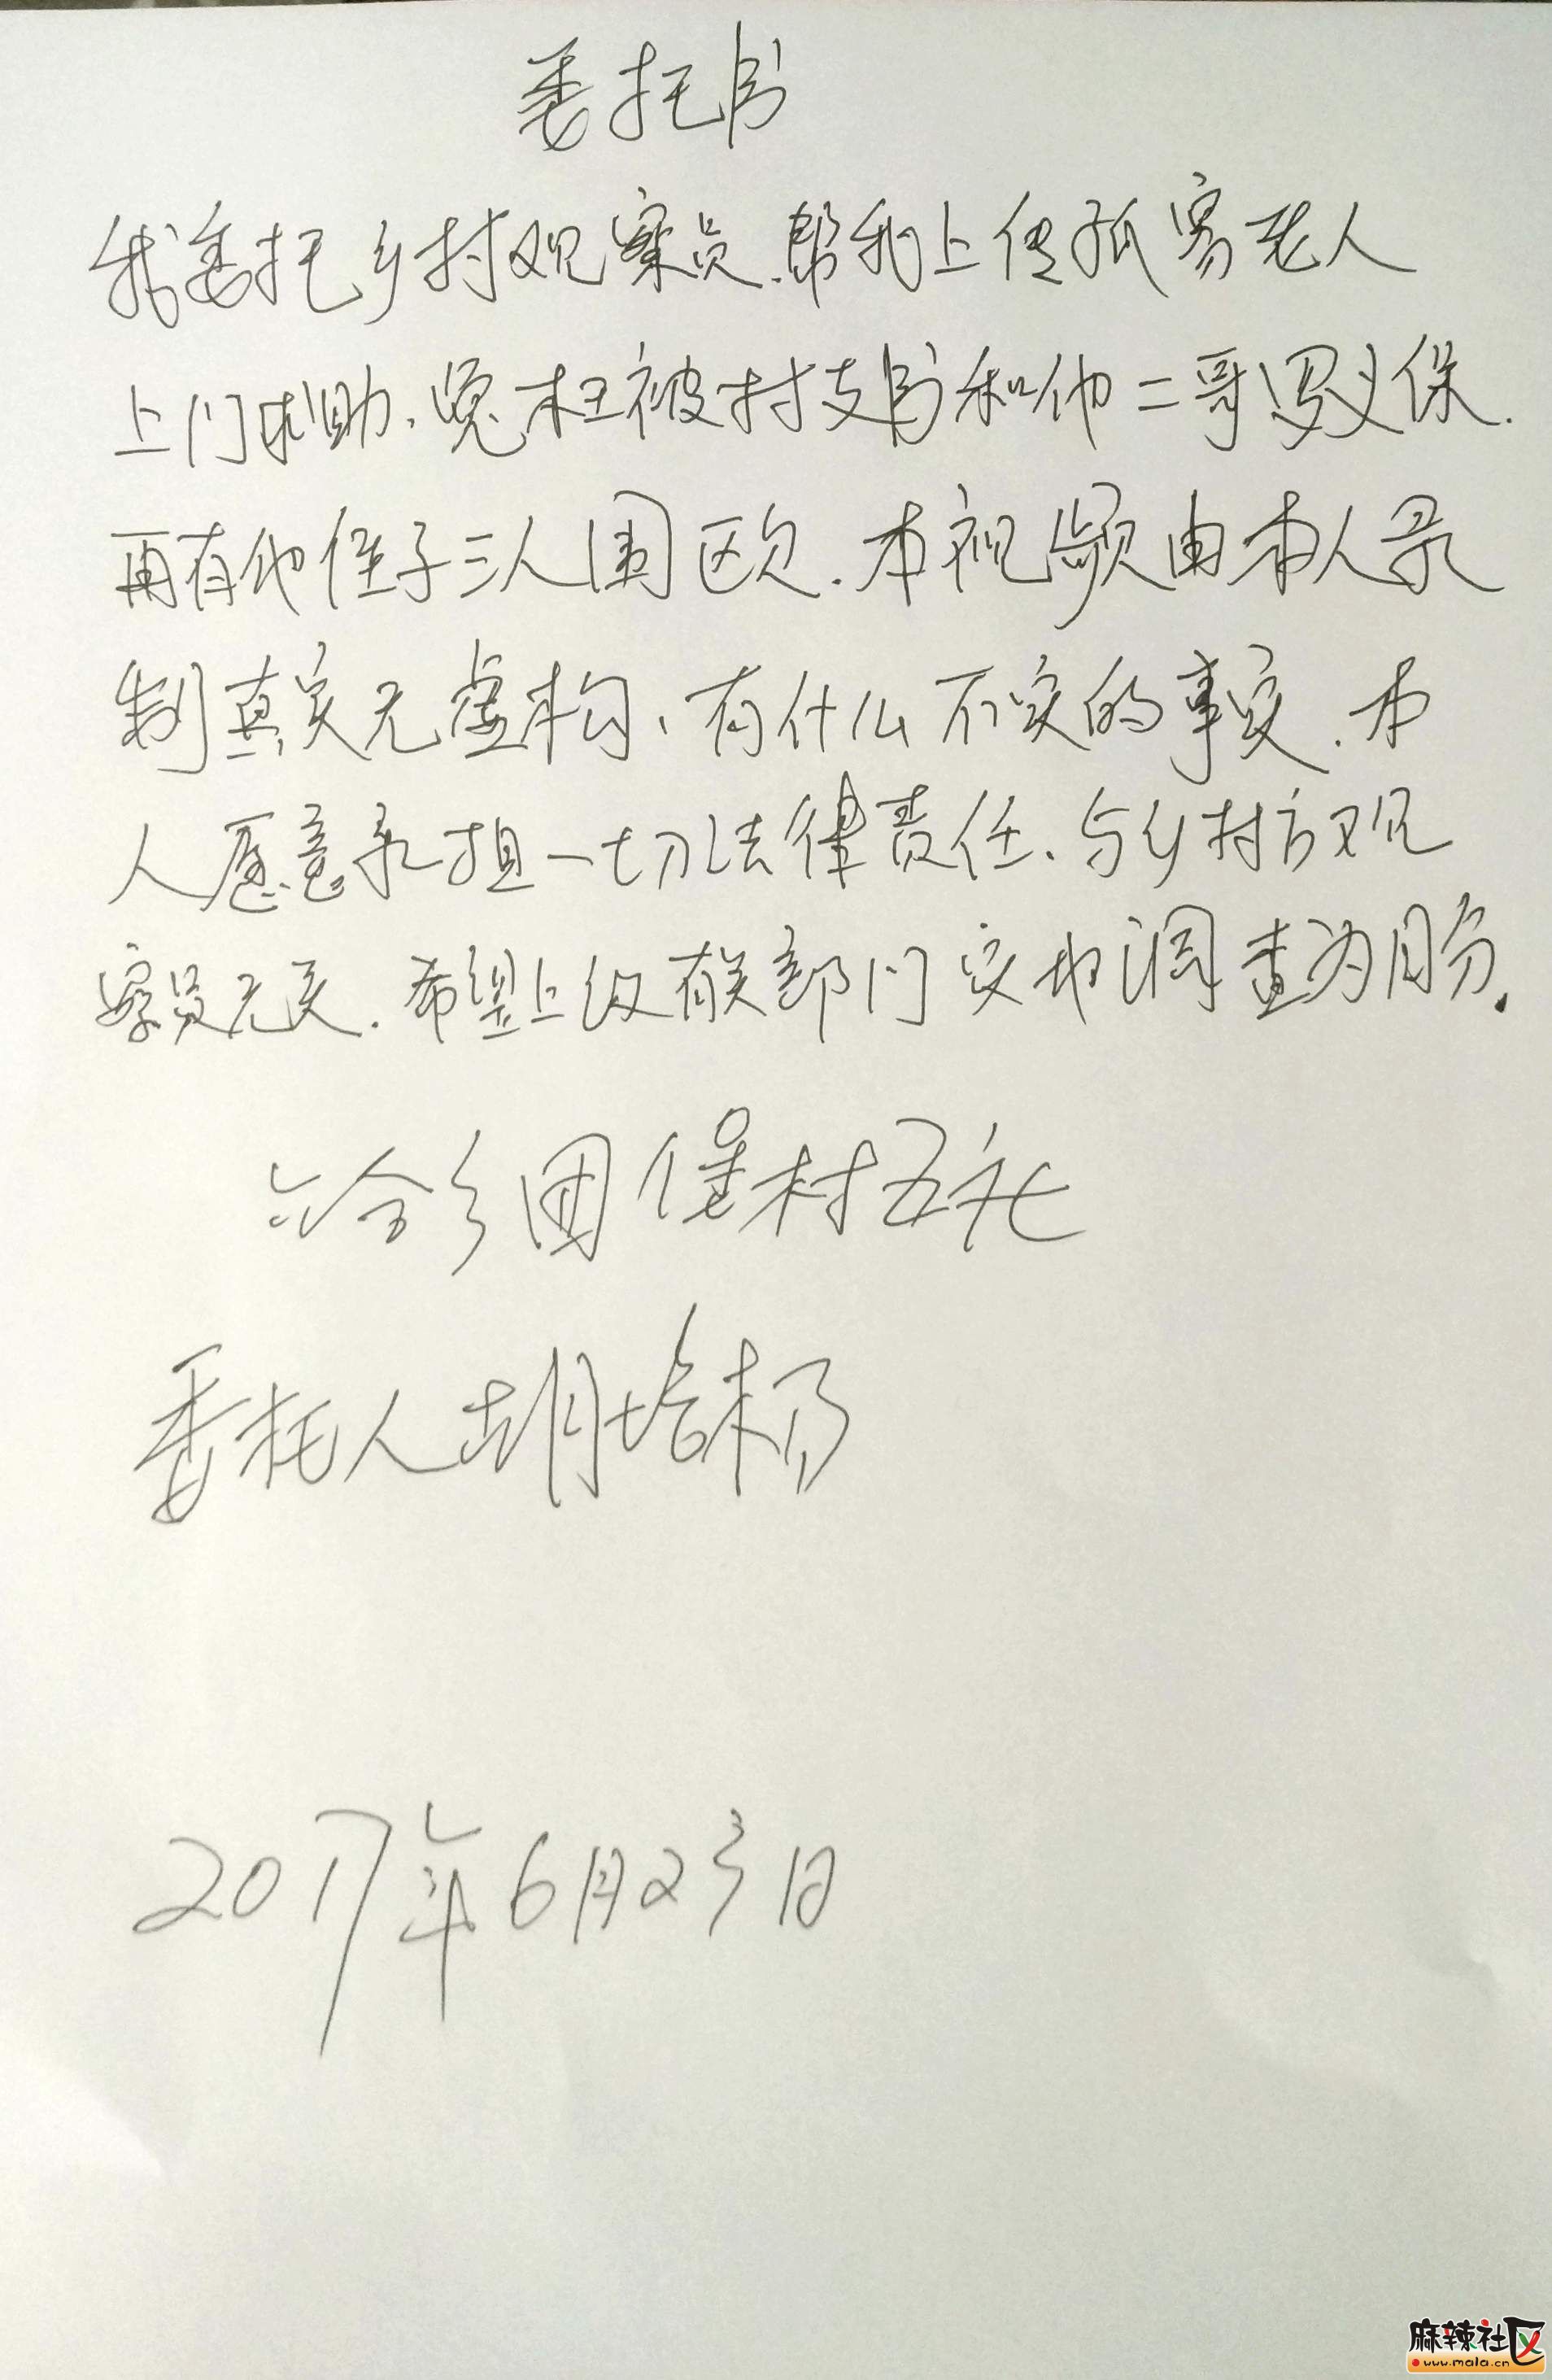 委托书
我委托乡村观察员.帮我上传孤寡老人
上门求助.冤枉被村支书和他二哥罗义保.
再有他侄子三人围殴.本视频由本人录
制真实无虚构、有什么不实的事实.本
人愿意承担一切法律责任.与乡村方观
察员无关.希望上级有关部门实地调查为月分.
六合乡团堡村五社
委托人胡培
2017年6月23日
麻辣社区
www.mala.cn